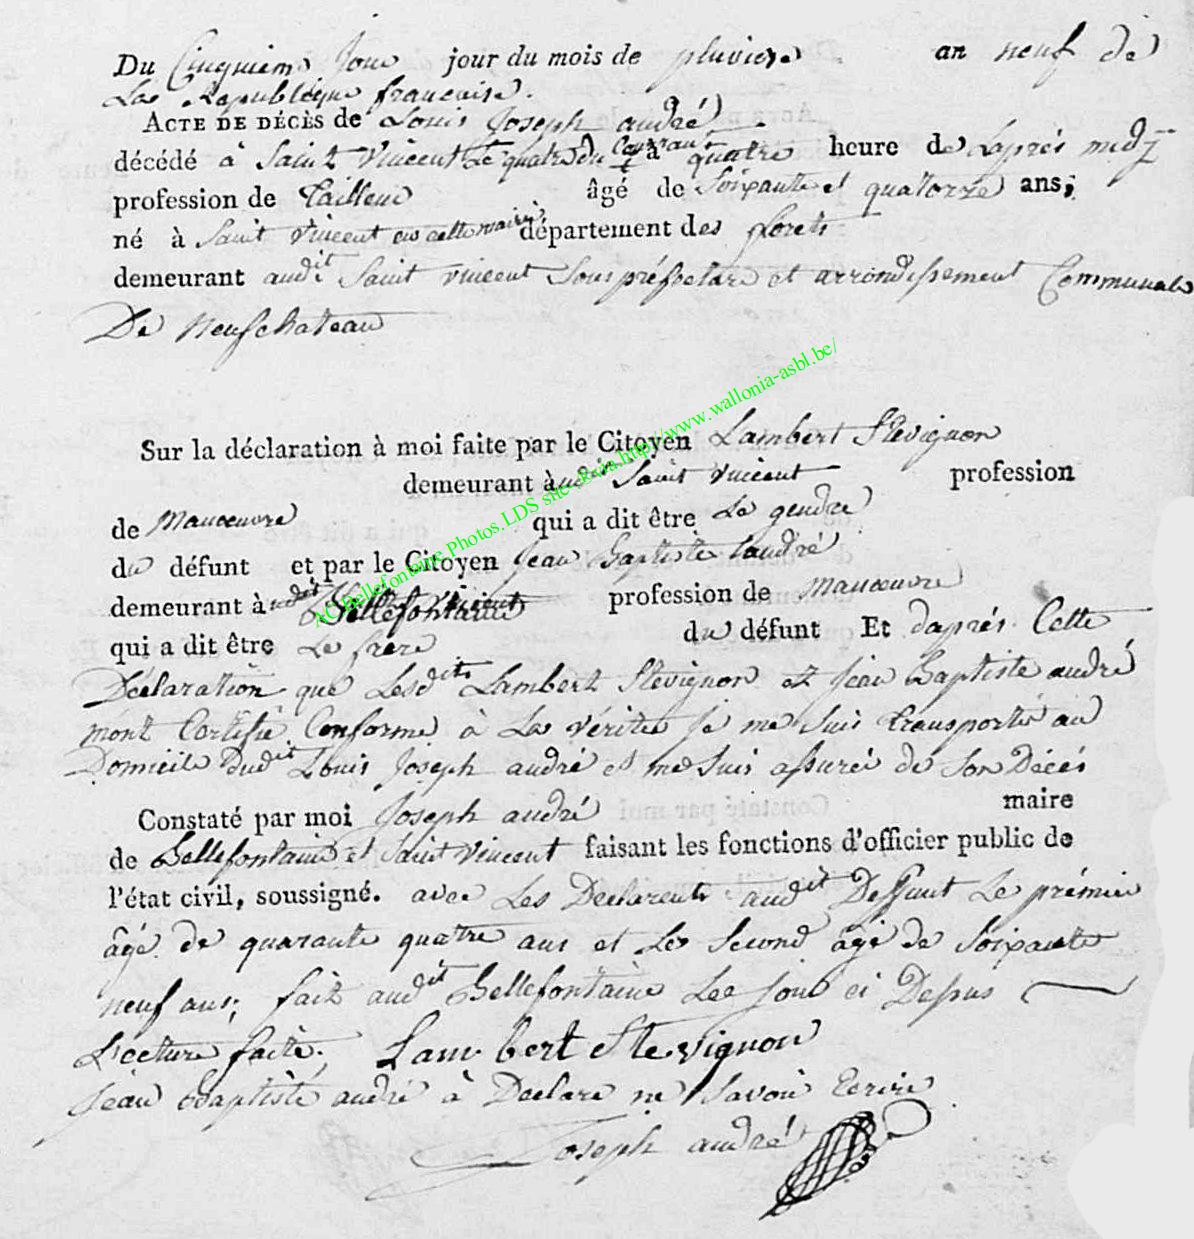 Du Cinquieme Jour jour du mois de pluviose an neuf de
La Republique francaise.
ACTE DE DÉCÈS de Louis Joseph andré
décédé à Saint Vincent Le quatre du Courrant à quatre heure de Laprés midy
profession de Tailleur âgé de Soixante et quatorze ans;
né à Saint Vincent en cette mairie département des forets
demeurant audit Saint vincent Sous préfecture et arrondissement Communale
De Neufchateau
Sur la déclaration à moi faite par le Citoyen Lambert Stevignon
demeurant à audit Saint Vincent profession
de Manoeuvre qui a dit être Le gendre
du défunt et par le Citoyen Jean Baptiste andré
demeurant à audit Bellefontaine profession de Manoeuvre
qui a dit être Le frere du défunt Et daprés Cette
Déclaration que Lesdits Lambert Stevignon et Jean Baptiste andré
mont Certifié Conforme à La vérité Je me Suis transporté au
Domicile dudit Louis Joseph andré et me Suis assuré de Son Décés
Constaté par moi Joseph andré maire
de Bellefontaine et Saint Vincent faisant les fonctions d'officier public de
l'état civil, soussigné. avec Les Declarents audit Deffunt Le prémier
âgé de quarante quatre ans et Le Second âgé de Soixante
neuf ans; fait audit Bellefontaine Les Jour ci Dessus
Lecture faite. Lambert Stevignon
Jean Baptiste andré à Declare ne Savoir Ecrire
Joseph andré
AC Bellefontaine Photos.LDS site http://www.wallonia-asbl.be/